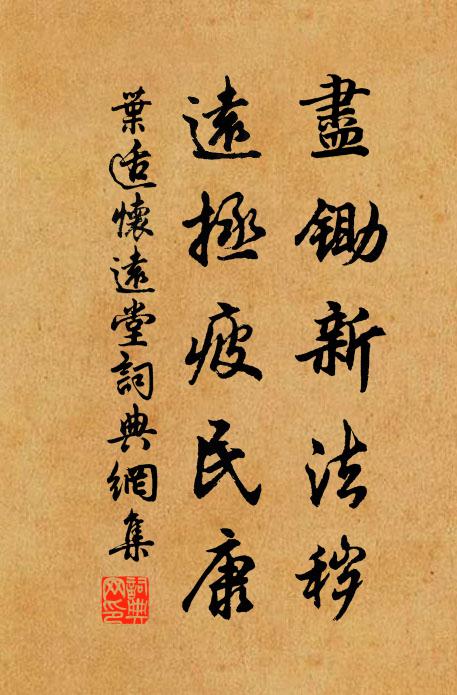 盡鋤新法穢
遠極疲民康
葉适懷遠堂詞典網集
詞典網印